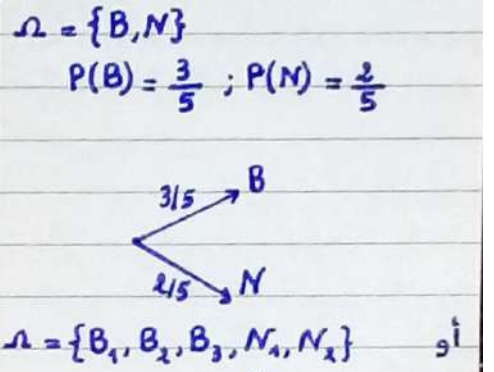 Ω = {B, N}
P(B) = 3/5 ; P(N) = 2/5
3/5 B
2/5 N
Ω = {B₁, B₂, B₃, N₁, N₂} أو